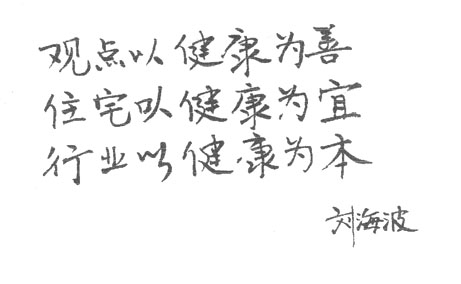 观点以健康为善
住宅以健康为宜
行业以健康为本
刘海波